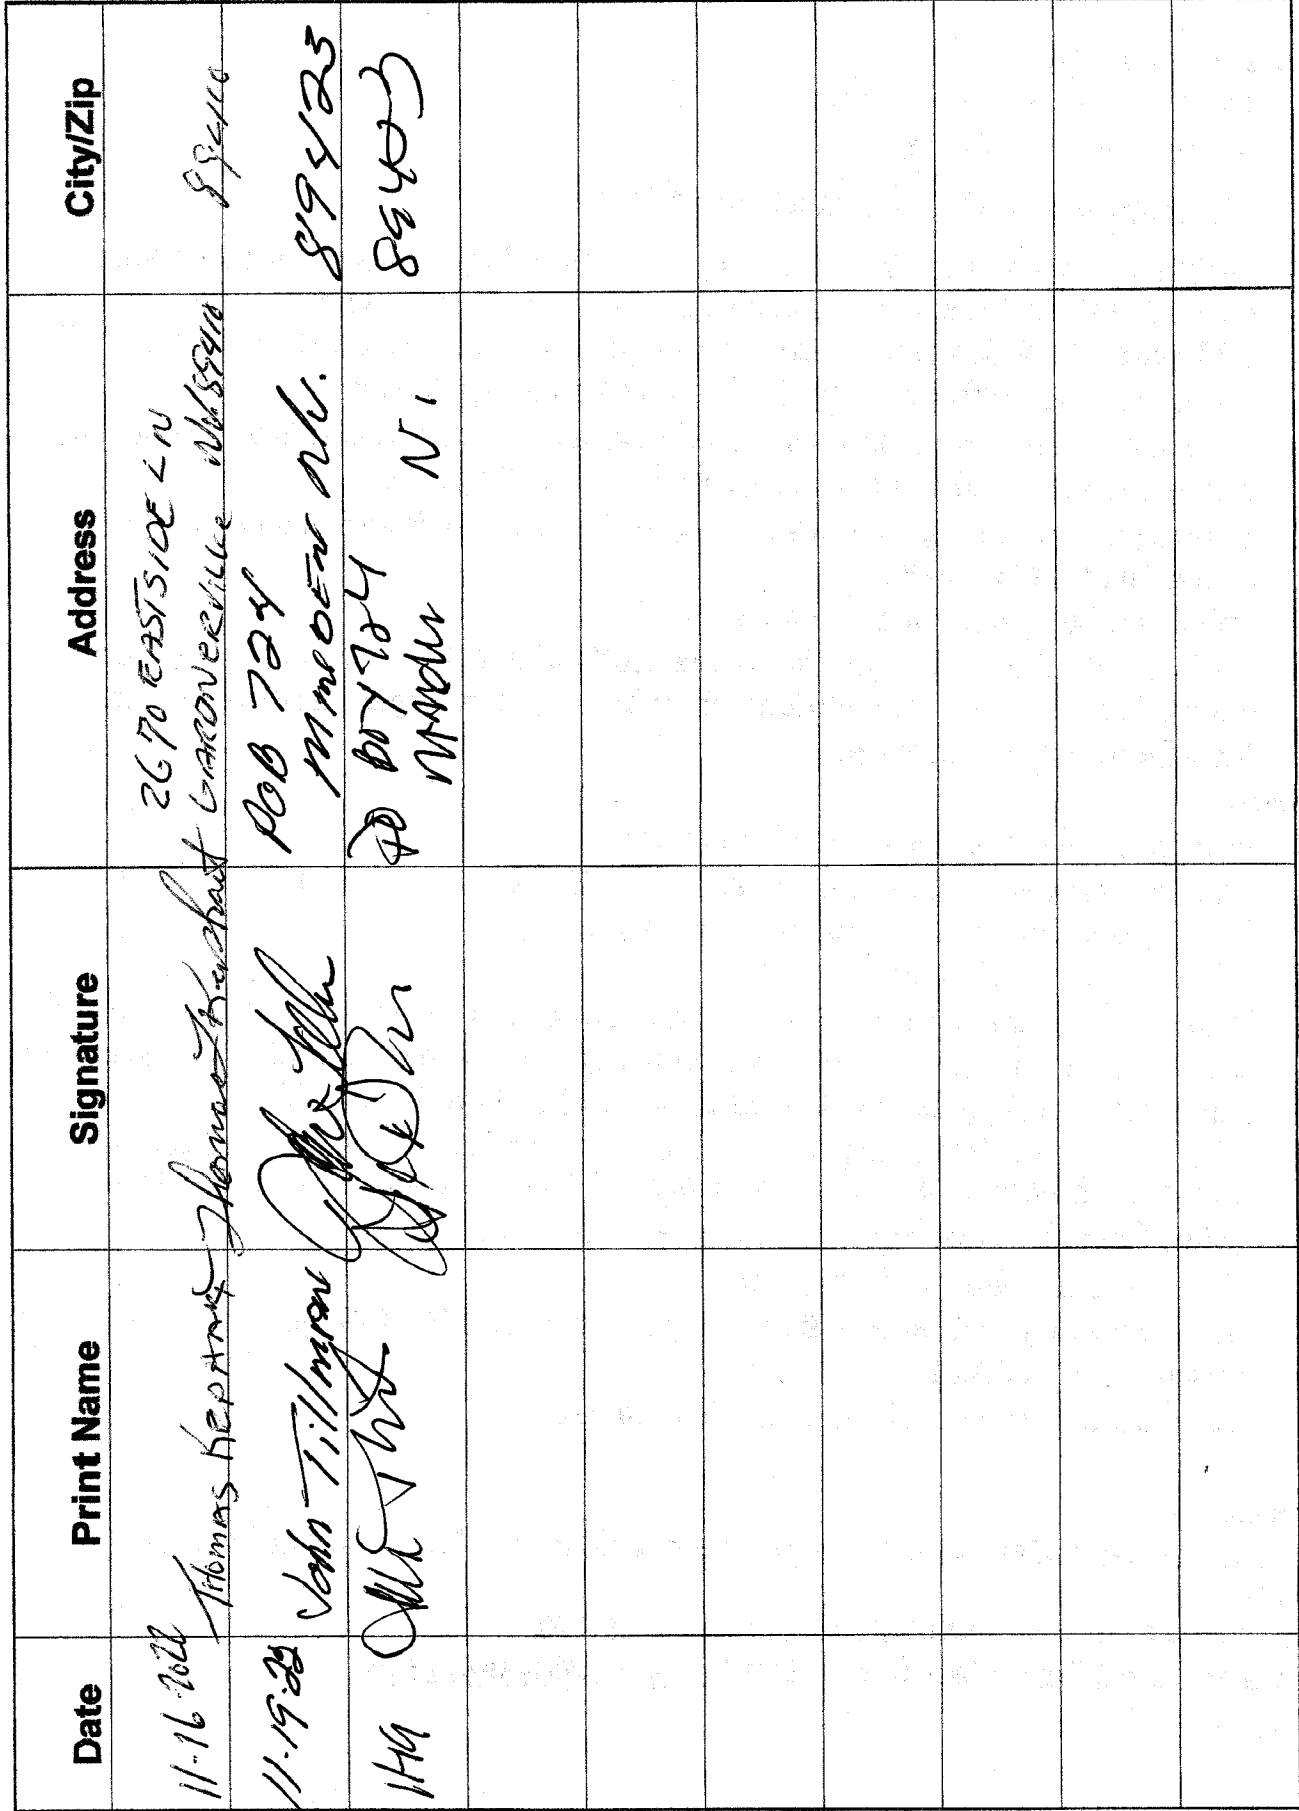 Date Print Name Signature Address City/Zip
11-16-2022 Thomas Kephart Thomas Kephart 2670 EASTSIDE LN
GARDNERVILLE NV 89410 89410
11-19-22 John Tillman POB 724 89423
MINDEN NV.
11-19 PO BOX 724 89423